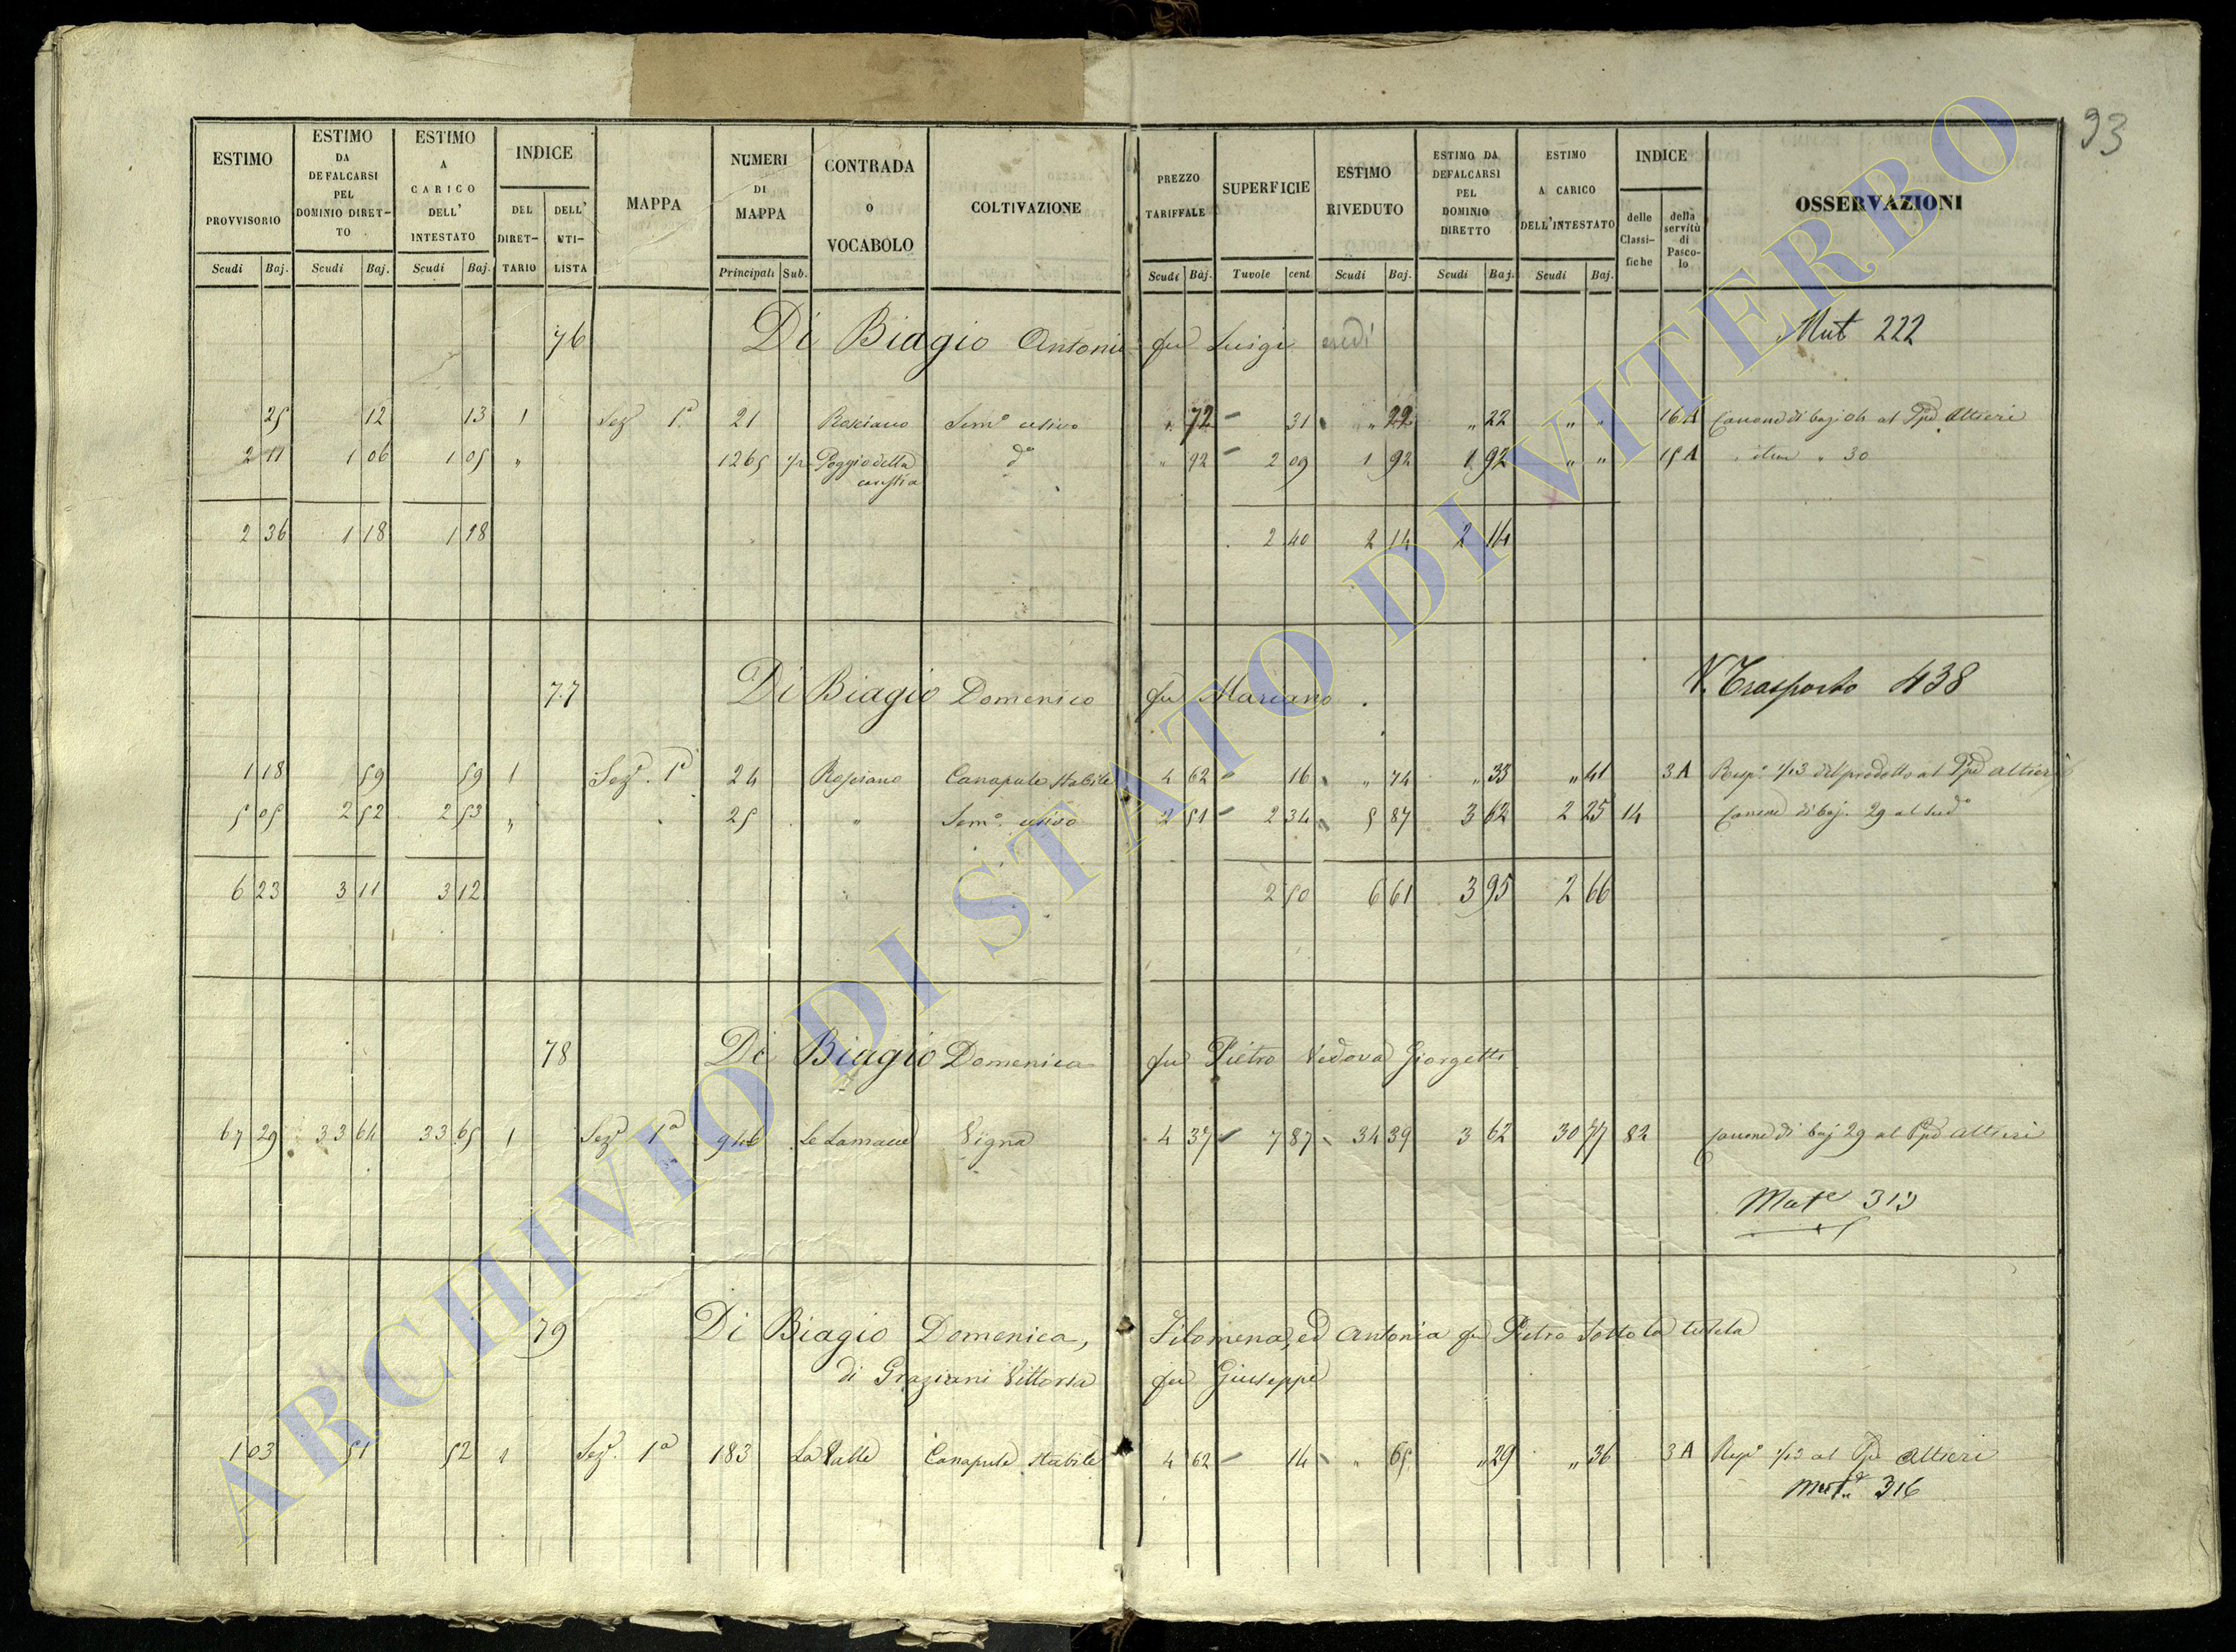 93
ESTIMO PROVVISORIO | ESTIMO DA DEFALCARSI PEL DOMINIO DIRETTO | ESTIMO A CARICO DELL' INTESTATO | INDICE DEL DIRETTARIO | DELL' UTILISTA | MAPPA | NUMERI DI MAPPA | CONTRADA O VOCABOLO | COLTIVAZIONE | PREZZO TARIFFALE | SUPERFICIE | ESTIMO RIVEDUTO | ESTIMO DA DEFALCARSI PEL DOMINIO DIRETTO | ESTIMO A CARICO DELL'INTESTATO | INDICE delle Classifiche | della servitù di Pascolo | OSSERVAZIONI
Scudi Baj. | Scudi Baj. | Scudi Baj. | Principali Sub. | Scudi Baj. | Tavole cent | Scudi Baj. | Scudi Baj. | Scudi Baj.
76 Di Biagio Antonio fu Luigi eredi Mut 222
25 | 12 | 13 | 1 | Sez.e 1.a | 21 | Rosciano | Sem.o | " 72 | 31 | " 22 | " 22 | " " | 16 A | Canone di baj 04 al Ppe Altieri
2 11 | 1 06 | 1 05 | " | 1265 | Poggio della | d.o | " 92 | 2 09 | 1 92 | 1 92 | " " | 15 A | idem " 30
2 36 | 1 18 | 1 18 | 2 40 | 2 14 | 2 14
77 Di Biagio Domenico fu Mariano. V. Trasporto 438
1 18 | 59 | 59 | 1 | Sez.e 1.a | 24 | Rosciano | Canapule Stabile | 4 62 | 16 | " 74 | " 33 | " 41 | 3 A | Risp.e 1/13 del prodotto al Ppe Altieri
5 05 | 2 52 | 2 53 | " | 25 | " | Sem.o | 2 51 | 2 34 | 5 87 | 3 62 | 2 25 | 14 | Canone di baj. 29 al sud.o
6 23 | 3 11 | 3 12 | 2 50 | 6 61 | 3 95 | 2 66
78 Di Biagio Domenica fu Pietro Vedova Giorgetti
67 29 | 33 64 | 33 65 | 1 | Sez.e 1.a | 946 | Vigna | 4 37 | 7 87 | 34 39 | 3 62 | 30 77 | 82 | Canone di baj 29 al Ppe Altieri
Mut.e 315
79 Di Biagio Domenica, Filomena, ed Antonia fu Pietro sotto la tutela
di Graziani Vittoria fu Giuseppe
1 03 | 51 | 52 | 1 | Sez.e 1.a | 183 | La Valle | Canapule Stabile | 4 62 | 14 | " 65 | " 29 | " 36 | 3 A | Risp.e 1/13 al Ppe Altieri
Mut.e 316
ARCHIVIO DI STATO DI VITERBO